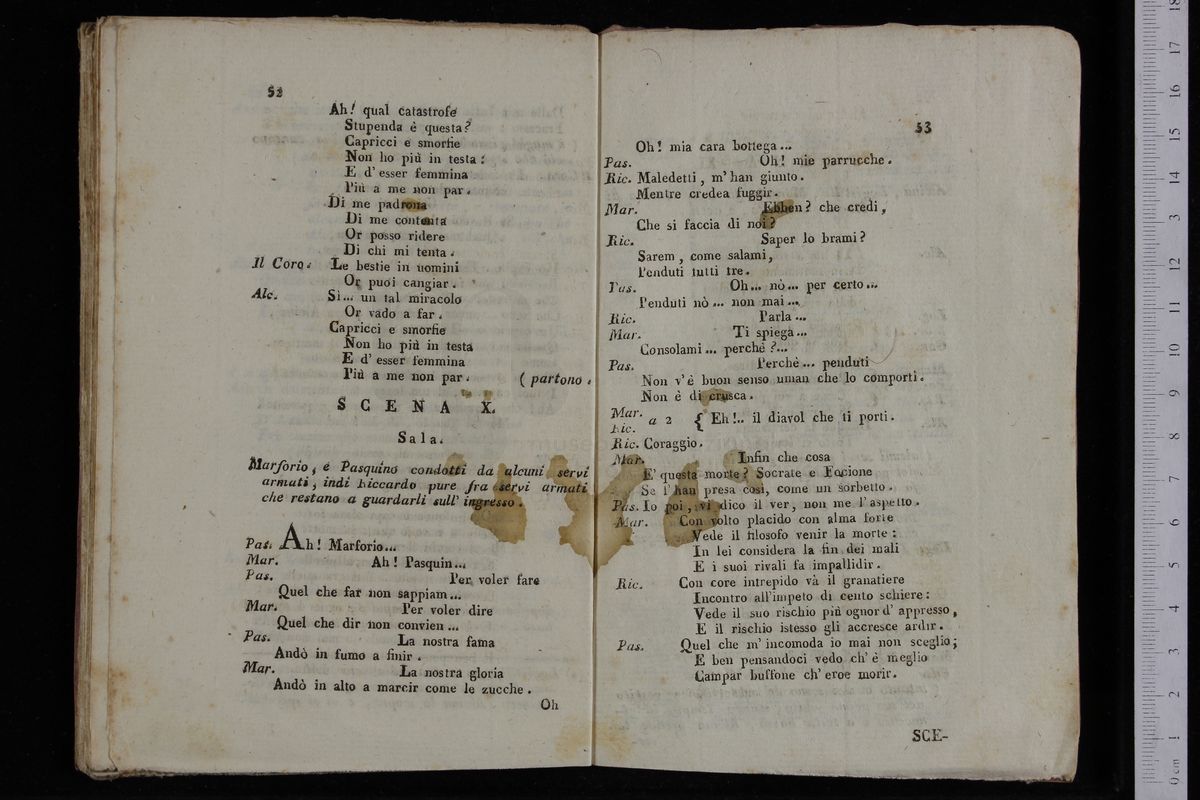 52
Ah! qual catastrofe
Stupenda è questa?
Capricci e smorfie
Non ho più in testa:
E d' esser femmina
Più a me non par.
Di me padrona
Di me contenta
Or posso ridere
Di chi mi tenta.
Il Coro. Le bestie in uomini
Or puoi cangiar.
Alc. Sì... un tal miracolo
Or vado a far.
Capricci e smorfie
Non ho più in testa
E d' esser femmina
Più a me non par. ( partono.
SCENA X.
Sala.
Marforio, e Pasquino condotti da alcuni servi
armati, indi Riccardo pure fra servi armati
che restano a guardarli sull' ingresso.
Pas. Ah! Marforio...
Mar. Ah! Pasquin...
Pas. Per voler fare
Quel che far non sappiam...
Mar. Per voler dire
Quel che dir non convien...
Pas. La nostra fama
Andò in fumo a finir.
Mar. La nostra gloria
Andò in alto a marcir come le zucche.
Oh
53
Oh! mia cara bottega...
Pas. Oh! mie parrucche.
Ric. Maledetti, m' han giunto.
Mentre credea fuggir.
Mar. Ebben? che credi,
Che si faccia di noi?
Ric. Saper lo brami?
Sarem, come salami,
Penduti tutti tre.
Pas. Oh... nò... per certo...
Penduti nò... non mai...
Ric. Parla...
Mar. Ti spiega...
Consolami... perchè?...
Pas. Perchè... penduti
Non v'è buon senso uman che lo comporti.
Non è di crusca.
Mar.
Ric. a 2 { Eh!.. il diavol che ti porti.
Ric. Coraggio.
Mar. Infin che cosa
E' questa morte? Socrate e Focione
Se l' han presa così, come un sorbetto.
Pas. Io poi, vi dico il ver, non me l' aspetto.
Mar. Con volto placido con alma forte
Vede il filosofo venir la morte:
In lei considera la fin dei mali
E i suoi rivali fa impallidir.
Ric. Con core intrepido và il granatiere
Incontro all'impeto di cento schiere:
Vede il suo rischio più ognor d' appresso,
E il rischio istesso gli accresce ardir.
Pas. Quel che m' incomoda io mai non sceglio;
E ben pensandoci vedo ch' è meglio
Campar buffone ch' eroe morir.
SCE-
0 cm 1 2 3 4 5 6 7 8 9 10 11 12 13 14 15 16 17 18